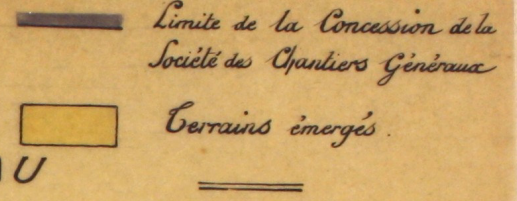 Limite de la Concession de la
Société des Chantiers Généraux
Terrains émergés.
U